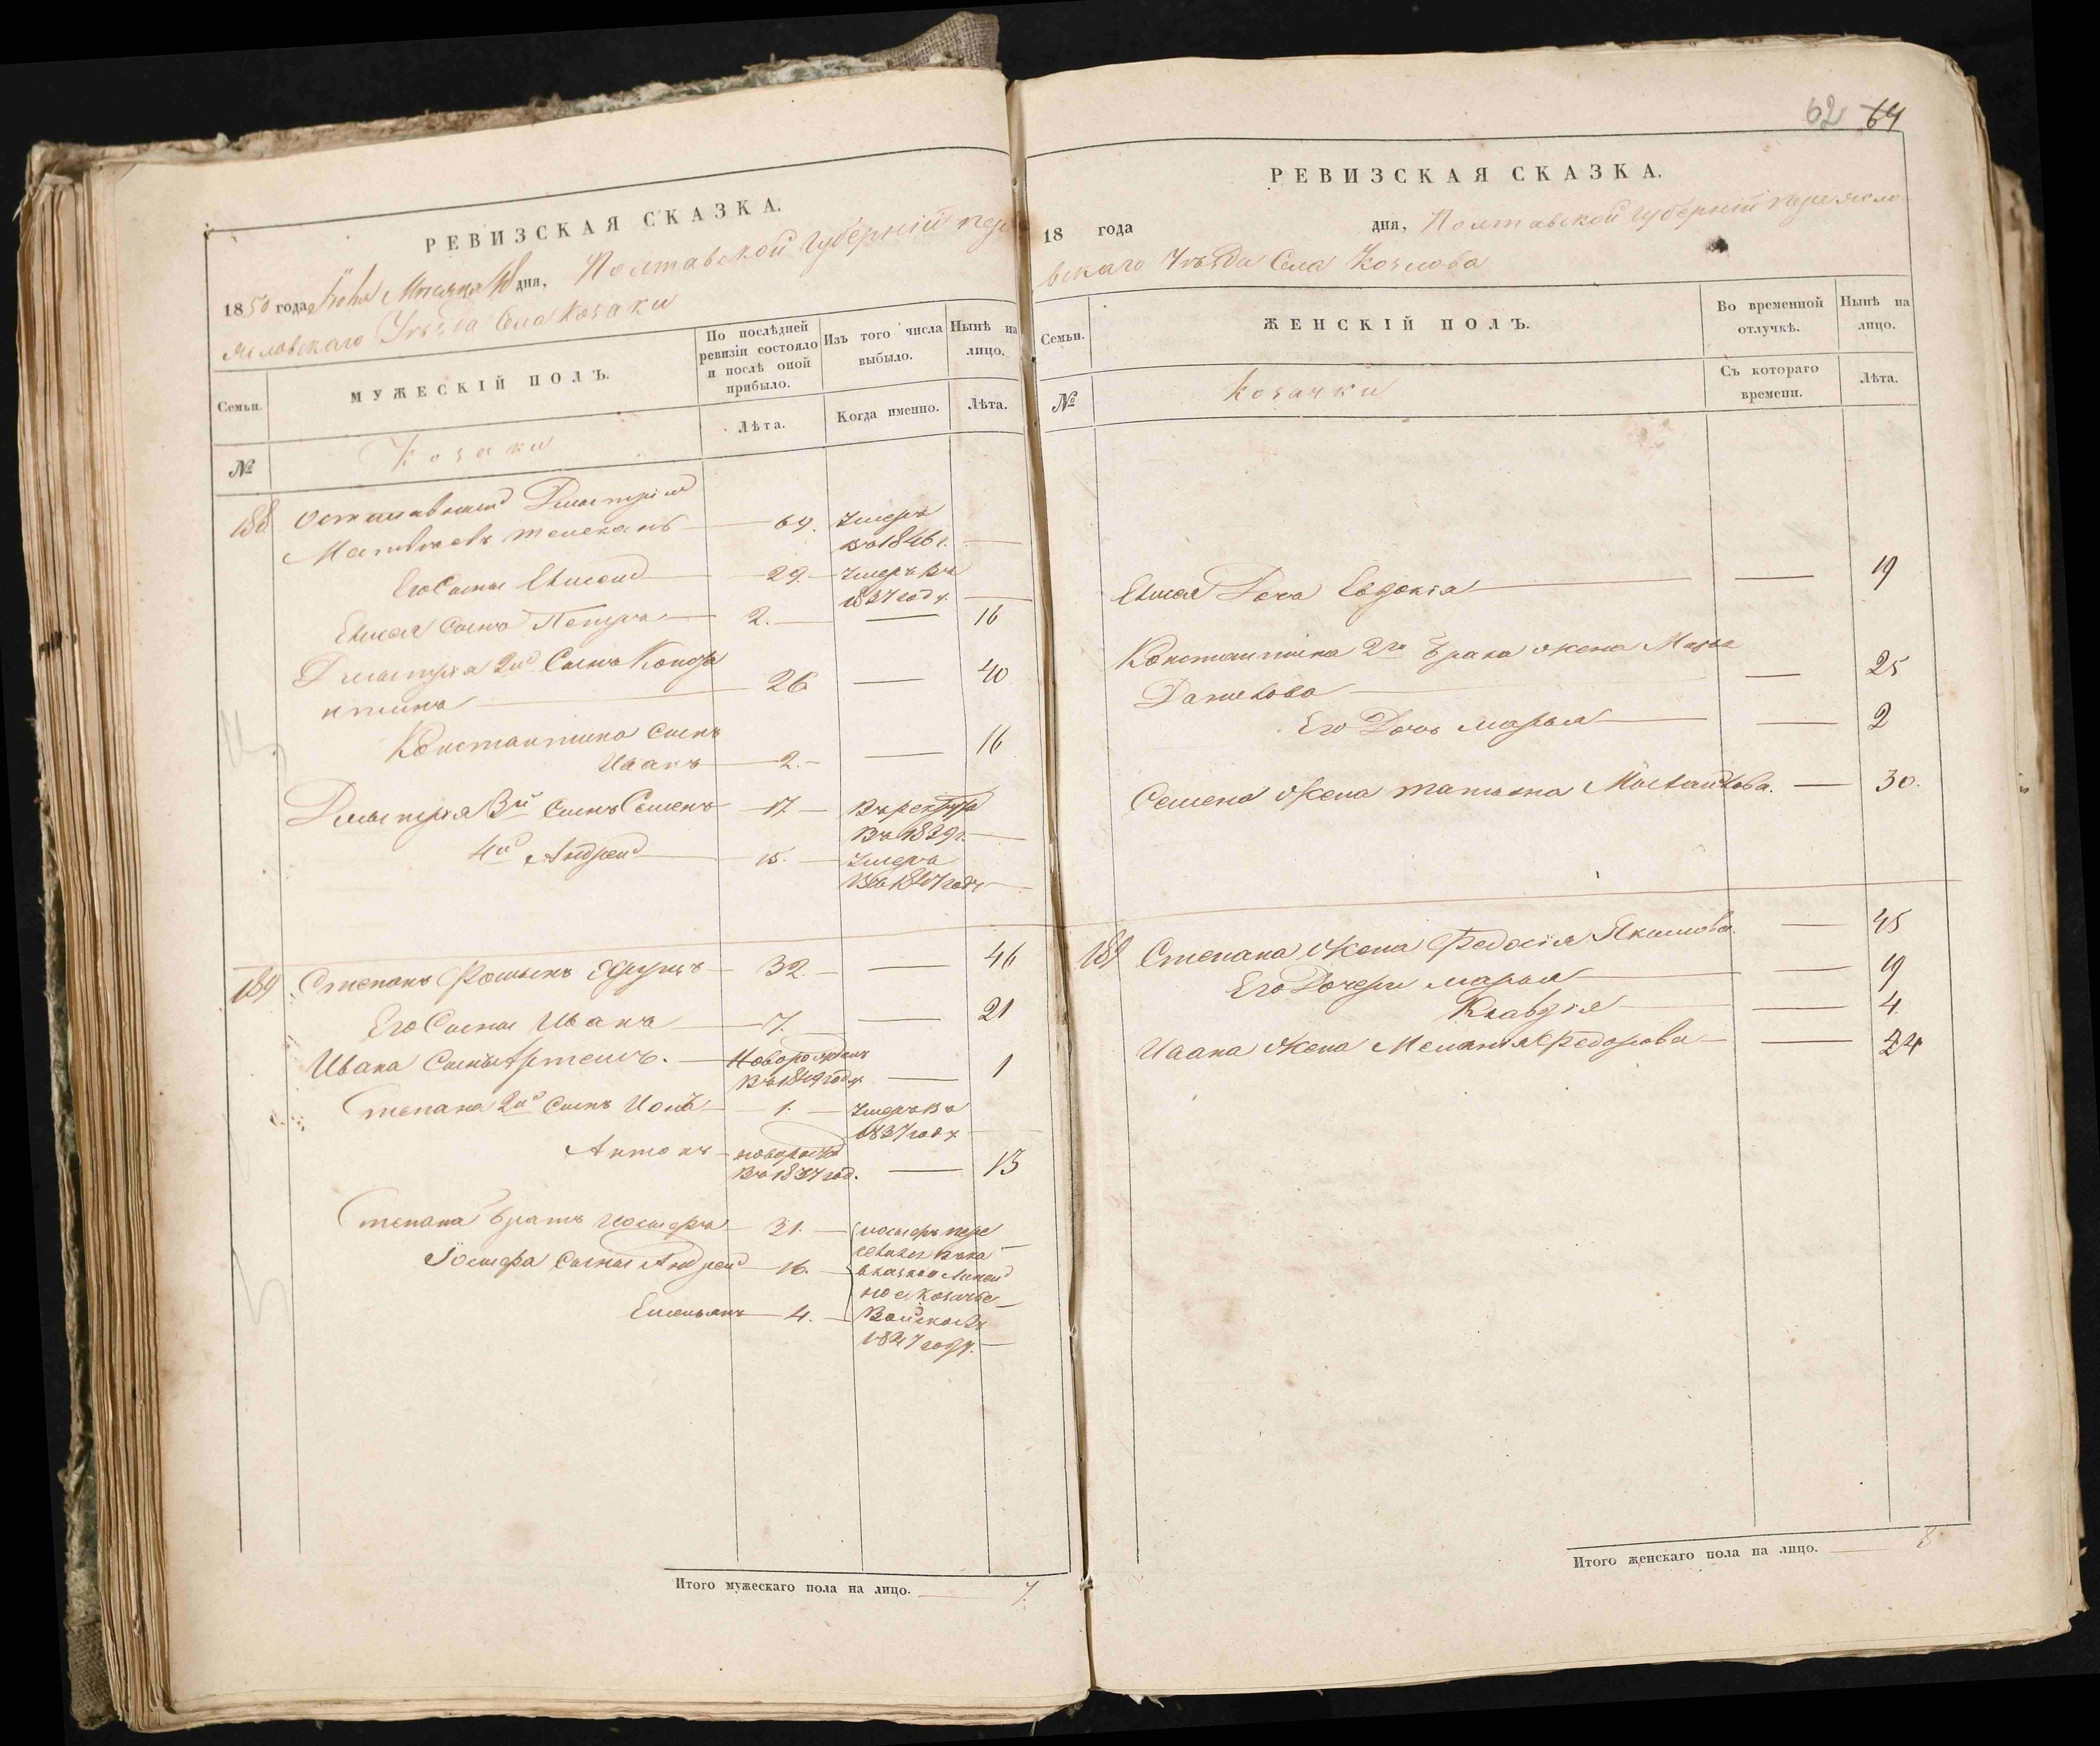 РЕВИЗСКАЯ СКАЗКА.
1850 года Ноября Месяца дня, Полтавской губерній пере
яславскаго Уѣзда Села Козаки
Семьи.
МУЖЕСКІЙ ПОЛЪ.
По послѣдней ревизіи состояло и послѣ оной прибыло.
Изъ того числа выбыло.
Нынѣ на лицо.
Лѣта.
Когда именно.
Лѣта.
№
Козаки
188 Дмитрій
Матвѣевъ 69. Умеръ
въ 1846 г.
Его Сынъ 29. Умеръ въ
1837 году.
Сынъ Петръ 2. 16
Дмитрія 2й Сынъ Конста
нтинъ 26 40
Константина Сынъ
Иванъ 2. 16
Дмитрія 3й Сынъ Семенъ 17. Въ рекруты
въ 1839 г.
4й Андрей 15. Умеръ
въ 1847 году
189 Степанъ Фоминъ 32. 46
Его Сынъ Иванъ 7. 21
Ивана Сынъ Артемъ. Новорожденъ
въ 1849 году 1
Степана 2й Сынъ 1. Умеръ въ
1837 году
Антонъ новорож
въ 1837 год. 13
Степана братъ Іосифъ 31. Іосифъ пере
Іосифа Сынъ Андрей 16.
Емельянъ 4.
ное козачье
Войско въ
1847 году.
Итого мужескаго пола на лицо. 7.
62 64
РЕВИЗСКАЯ СКАЗКА.
18 года дня, Полтавской губерній переясла
вскаго Уѣзда Села Козлова
Семьи.
ЖЕНСКІЙ ПОЛЪ.
Во временной отлучкѣ.
Нынѣ на лицо.
№
Козачки
Съ котораго времени.
Лѣта.
Дочь Евдокія 19
Константина 2го брака жена Марья
25
Его Дочь Марья 2
Семена Жена Татьяна 30.
189 Степана Жена Федосія Якимова 45
Его Дочери Марья 19
Клавдія 4.
Ивана Жена Меланія Федорова 24
Итого женскаго пола на лицо. 8